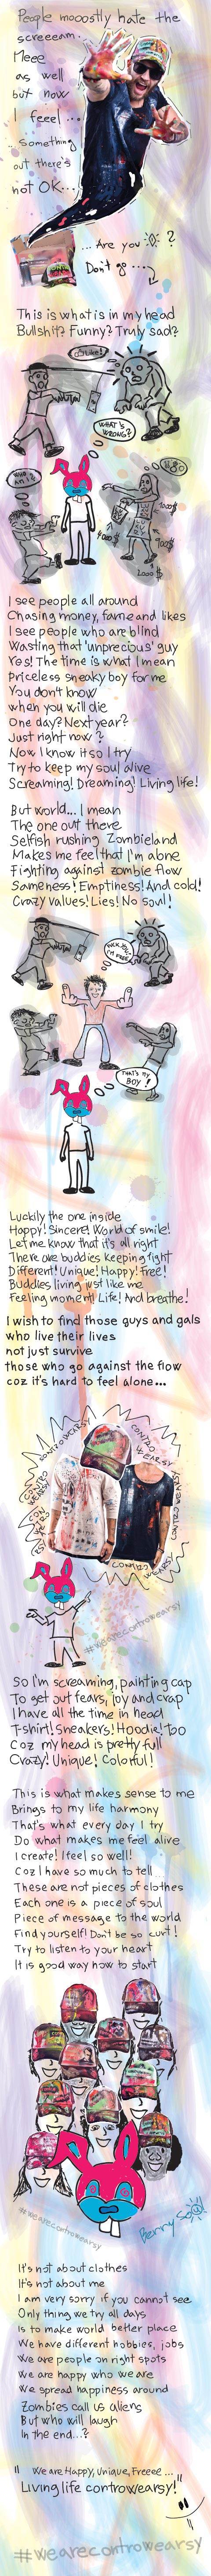 People mooostly hate the
screeeam.
Meee
as well
but now
I feeel ...
... Something
out there's
not OK...
... Are you ?
Don't go ...
This is what is in my head
Bullshit? Funny? Truly sad?
Like!
WHAT'S
WRONG?
WHO
AM I?
1000$
2000$
I see people all around
Chasing money, fame and likes
I see people who are blind
Wasting that "unprecious" guy
Yes! The time is what I mean
Priceless sneaky boy for me
You don't know
when you will die
One day? Next year?
Just right now?
Now I know it so I try
Try to keep my soul alive
Screaming! Dreaming! Living life!
But world... I mean
The one out there
Selfish rushing Zombieland
Makes me feel that I'm alone
Fighting against zombie flow
Sameness! Emptiness! And cold!
Crazy Values! Lies! No Soul!
I'M FREE
THAT'S MY
BOY!
Luckily the one inside
Happy! Sincere! World of smile!
Let me know that it's all right
There are buddies keeping fight
Different! Unique! Happy! Free!
Buddies living just like me
Feeling moment! Life! And breathe!
I wish to find those guys and gals
who live their lives
not just survive
those who go against the flow
coz it's hard to feel alone...
CONTROWEARSY
CONTRO
WEARSY
CONTROWEARSY
#wearecontrowearsy
So I'm screaming, painting cap
To get out fears, joy and crap
I have all the time in head
T-shirt! Sneakers! Hoodie! Too
Coz my head is pretty full
Crazy! Unique! Colorful!
This is what makes sense to me
Brings to my life harmony
That's what every day I try
Do what makes me feel alive
I create! I feel so well!
Coz I have so much to tell ...
These are not pieces of clothes
Each one is a piece of soul
Piece of message to the world
Find yourself! Don't be so curt!
Try to listen to your heart
It is good way how to start
#wearecontrowearsy
Berry
It's not about clothes
It's not about me
I am very sorry if you cannot see
Only thing we try all days
Is to make world better place
We have different hobbies, jobs
We are people on right spots
We are happy who we are
We spread happiness around
Zombies call us aliens
But who will laugh
In the end...?
" We are Happy, Unique, Freeee ...
Living life controwearsy! "
#wearecontrowearsy